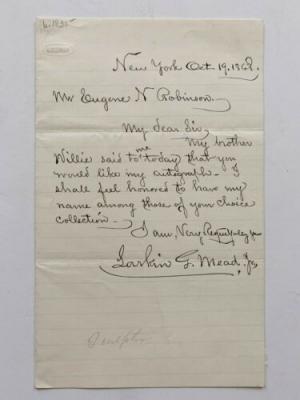 b. 1835
New York Oct 19. 1868.
Mr Eugene N Robinson
My dear Sir,
My brother
Willie said to me today that you
would like my autograph - I
shall feel honored to have my
name among those of your choice
collection -
I am, Very
Larkin G. Mead Jr
Sculptor